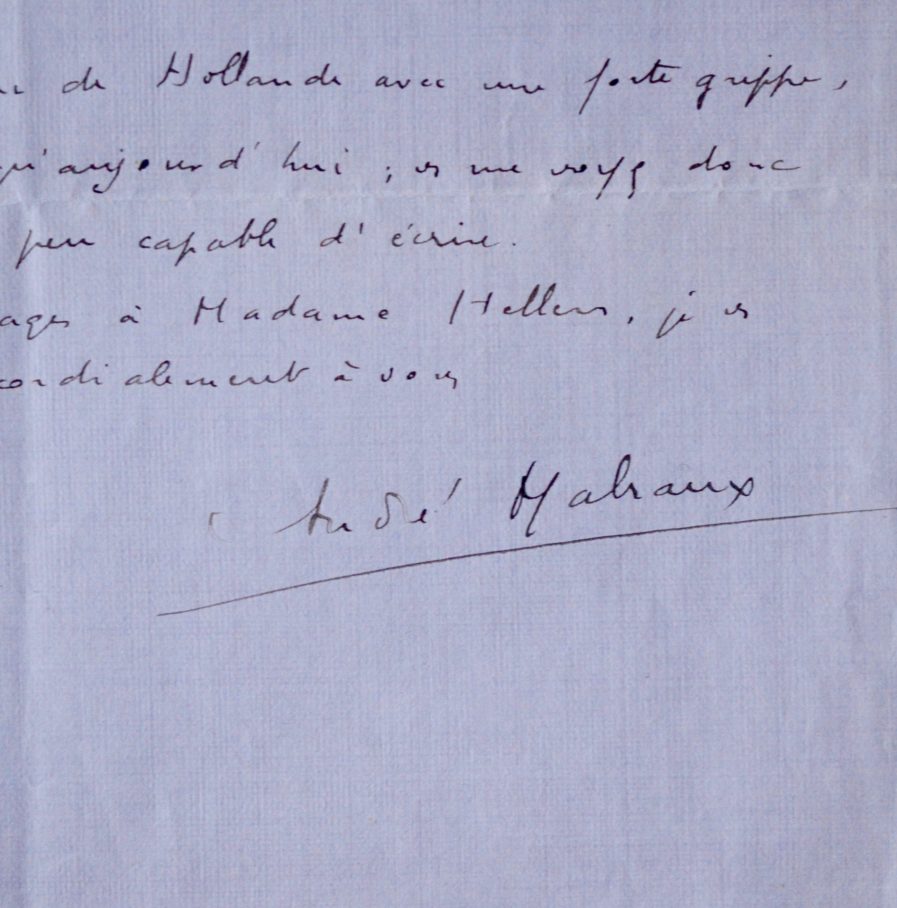 de Hollande avec une forte grippe,
qu'aujourd'hui ; vs me voyez donc
peu capable d'écrire.
ages à Madame Hellens, je vs
cordialement à vous
André Malraux